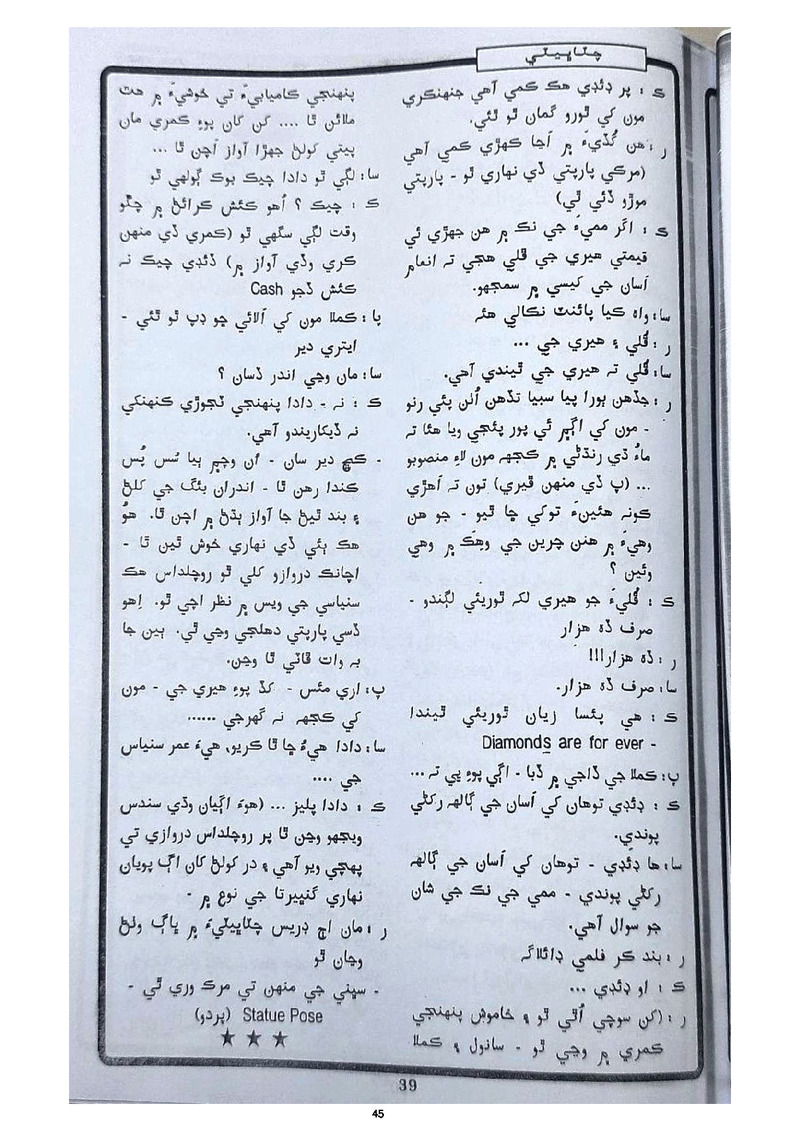 چٽاڀيٽي
ڪ : پر ڊئڊي هڪ ڪمي آهي جنهنڪري
مون کي ٿورو گمان ٿو ٿئي.
ر : هن گُڏيءَ ۾ اڃا ڪهڙي ڪمي آهي
(مرڪي پارپتي ڏي نهاري ٿو - پارپتي
موڙو ڏئي ٿي)
ڪ : اگر مميءَ جي نڪ ۾ هن جهڙي ئي
قيمتي هيري جي ڦلي هجي ته انعام
اَسان جي کيسي ۾ سمجهو.
سا: واه کيا پائنٽ نڪالي هئه
ر : ڦُلي ۽ هيري جي ...
سا: ڦُلي ته هيري جي ٿيندي آهي.
ر : جڏهن ٻورا پيا سبيا تڏهن اُلن پئي رنو
- مون کي اڳ۾ ئي پور پئجي ويا هئا ته
ماءُ ڌي رنڌڻي ۾ ڪجهه مون لاءِ منصوبو
... (پ ڏي منهن ڦيري) تون ته اَهڙي
ڪونه هئينءَ توکي ڇا ٿيو - جو هن
وهيءَ ۾ هنن چرين جي وهڪ ۾ وهي
وئين ؟
ڪ : ڦُليءَ جو هيري لک ٿورئي لڳندو -
صرف ڏه هزار
ر : ڏه هزار!!!
سا: صرف ڏه هزار.
ڪ : هي پئسا زيان ٿورئي ٿيندا
- Diamonds are for ever
پ: ڪملا جي ڏاجي ۾ ڏبا - اڳي پوءِ پي ته...
ڪ : ڊئڊي توهان کي اَسان جي ڳالهه رکڻي
پوندي.
سا: ها ڊئڊي - توهان کي اَسان جي ڳالهه
رکڻي پوندي - ممي جي نڪ جي شان
جو سوال آهي.
ر : بند ڪر فلمي ڊائلاگ
ڪ : او ڊئڊي ...
ر : (کن سوچي اُٿي ٿو ۽ خاموش پنهنجي
ڪمري ۾ وڃي ٿو - سانول ۽ ڪملا
پنهنجي ڪاميابيءَ تي خوشيءَ ۾ هٿ
ملائن ٿا .... کن کان پوءِ ڪمري مان
پيتي کولڻ جهڙا آواز اَچن ٿا ...
سا: لڳي ٿو دادا چيڪ بوڪ ڳولهي ٿو
ڪ : چيڪ ؟ اُهو ڪئش ڪرائڻ ۾ چڱو
وقت لڳي سگهي ٿو (ڪمري ڏي منهن
ڪري وڏي آواز ۾) ڊئڊي چيڪ نه
ڪئش ڏجو Cash
پا: ڪملا مون کي اَلائي ڇو ڊپ ٿو ٿئي -
ايتري دير
سا: مان وڃي اندر ڏسان ؟
ڪ : نه - دادا پنهنجي تجوڙي ڪنهنکي
نه ڏيکاريندو آهي.
- ڪڇ دير سان - اُن وچ۾ ٻيا سُس پُس
ڪندا رهن ٿا - اندران بئگ جي کلڻ
۽ بند ٿيڻ جا آواز ٻڌڻ ۾ اچن ٿا. هُو
هڪ ٻئي ڏي نهاري خوش ٿين ٿا -
اچانڪ دروازو کلي ٿو روچلداس هڪ
سنياسي جي ويس ۾ نظر اچي ٿو. اِهو
ڏسي پارپتي دهلجي وڃي ٿي. ٻين جا
به وات ڦاٽي ٿا وڃن.
پ: اري مئس - کڏ پوءِ هيري جي - مون
کي ڪجهه نه گهرجي ......
سا: دادا هيءُ ڇا ٿا ڪريو، هيءَ عمر سنياس
جي ....
ڪ : دادا پليز ... (هوءَ اڳيان وڌي سندس
ويجهو وڃن ٿا پر روچلداس دروازي تي
پهچي ويو آهي ۽ در کولڻ کان اڳ پويان
نهاري گنڀيرتا جي نوع ۾ -
ر : مان اڄ ڊريس چٽاڀيٽيءَ ۾ ڀاڳ وٺڻ
وڃان ٿو
- سڀني جي منهن تي مرڪ وري ٿي -
Statue Pose (پردو)
★ ★ ★
39
45